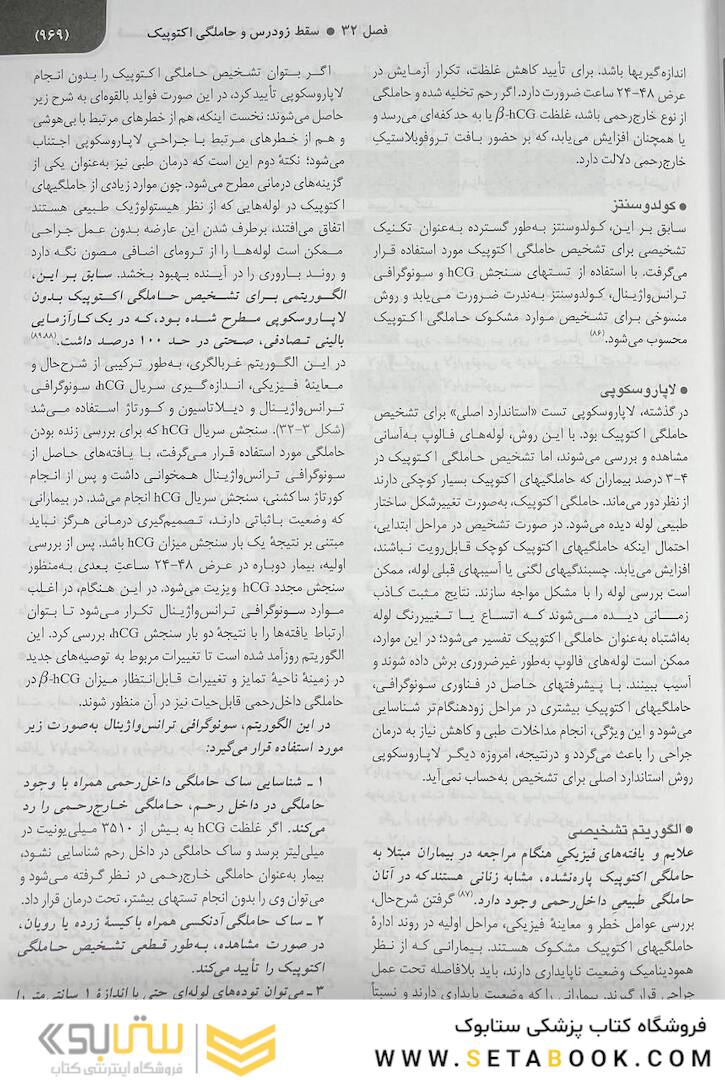 فصل ۳۲ ● سقط زودرس و حاملگی اکتوپیک
(۹۶۹)
اندازه‌گیریها باشد. برای تأیید کاهش غلظت، تکرار آزمایش در
عرض ۴۸-۲۴ ساعت ضرورت دارد. اگر رحم تخلیه شده و حاملگی
از نوع خارج‌رحمی باشد، غلظت β-hCG یا به حد کفه‌ای می‌رسد و
یا همچنان افزایش می‌یابد، که بر حضور بافت تروفوبلاستیک
خارج‌رحمی دلالت دارد.
● کولدوسنتز
سابق بر این، کولدوسنتز به‌طور گسترده به‌عنوان تکنیک
تشخیصی برای تشخیص حاملگی اکتوپیک مورد استفاده قرار
می‌گرفت. با استفاده از تستهای سنجش hCG و سونوگرافی
ترانس‌واژینال، کولدوسنتز به‌ندرت ضرورت می‌یابد و روش
منسوخی برای تشخیص موارد مشکوک حاملگی اکتوپیک
محسوب می‌شود.(۸۶)
● لاپاروسکوپی
در گذشته، لاپاروسکوپی تست «استاندارد اصلی» برای تشخیص
حاملگی اکتوپیک بود. با این روش، لوله‌های فالوپ به‌آسانی
مشاهده و بررسی می‌شوند، اما تشخیص حاملگی اکتوپیک در
۴-۳ درصد بیماران که حاملگیهای اکتوپیک بسیار کوچکی دارند
از نظر دور می‌ماند. حاملگی اکتوپیک، به‌صورت تغییرشکل ساختار
طبیعی لوله دیده می‌شود. در صورت تشخیص در مراحل ابتدایی،
احتمال اینکه حاملگیهای اکتوپیک کوچک قابل‌رویت نباشند،
افزایش می‌یابد. چسبندگیهای لگنی یا آسیبهای قبلی لوله، ممکن
است بررسی لوله را با مشکل مواجه سازند. نتایج مثبت کاذب
زمانی دیده می‌شوند که اتساع یا تغییررنگ لوله
به‌اشتباه به‌عنوان حاملگی اکتوپیک تفسیر می‌شود؛ در این موارد،
ممکن است لوله‌های فالوپ به‌طور غیرضروری برش داده شوند و
آسیب ببینند. با پیشرفتهای حاصل در فناوری سونوگرافی،
حاملگیهای اکتوپیک بیشتری در مراحل زودهنگام‌تر شناسایی
می‌شود و این ویژگی، انجام مداخلات طبی و کاهش نیاز به درمان
جراحی را باعث می‌گردد و درنتیجه، امروزه دیگر لاپاروسکوپی
روش استاندارد اصلی برای تشخیص به‌حساب نمی‌آید.
● الگوریتم تشخیصی
علایم و یافته‌های فیزیکی هنگام مراجعه در بیماران مبتلا به
حاملگی اکتوپیک پاره‌نشده، مشابه زنانی هستند که در آنان
حاملگی طبیعی داخل‌رحمی وجود دارد.(۸۷) گرفتن شرح‌حال،
بررسی عوامل خطر و معاینهٔ فیزیکی، مراحل اولیه در روند ادارهٔ
حاملگیهای اکتوپیک مشکوک هستند. بیمارانی که از نظر
همودینامیک وضعیت ناپایداری دارند، باید بلافاصله تحت عمل
جراحی قرار گیرند. بیمارانی را که وضعیت پایداری دارند و نسبتاً
اگر بتوان تشخیص حاملگی اکتوپیک را بدون انجام
لاپاروسکوپی تأیید کرد، در این صورت فواید بالقوه‌ای به شرح زیر
حاصل می‌شوند: نخست اینکه، هم از خطرهای مرتبط با بی‌هوشی
و هم از خطرهای مرتبط با جراحیِ لاپاروسکوپی اجتناب
می‌شود؛ نکتهٔ دوم این است که درمان طبی نیز به‌عنوان یکی از
گزینه‌های درمانی مطرح می‌شود. چون موارد زیادی از حاملگیهای
اکتوپیک در لوله‌هایی که از نظر هیستولوژیک طبیعی هستند
اتفاق می‌افتند، برطرف شدن این عارضه بدون عمل جراحی
ممکن است لوله‌ها را از ترومای اضافی مصون نگه دارد
و روند باروری را در آینده بهبود بخشد. سابق بر این،
الگوریتمی برای تشخیص حاملگی اکتوپیک بدون
لاپاروسکوپی مطرح شده بود، که در یک کارآزمایی
بالینی تصادفی، صحتی در حد ۱۰۰ درصد داشت.(۸۹،۸۸)
در این الگوریتم غربالگری، به‌طور ترکیبی از شرح‌حال و
معاینهٔ فیزیکی، اندازه‌گیری سریال hCG، سونوگرافی
ترانس‌واژینال و دیلاتاسیون و کورتاژ استفاده می‌شد
(شکل ۳-۳۲). سنجش سریال hCG که برای بررسی زنده بودن
حاملگی مورد استفاده قرار می‌گرفت، با یافته‌های حاصل از
سونوگرافی ترانس‌واژینال همخوانی داشت و پس از انجام
کورتاژ ساکشنی، سنجش سریال hCG انجام می‌شد. در بیمارانی
که وضعیت باثباتی دارند، تصمیم‌گیری درمانی هرگز نباید
مبتنی بر نتیجهٔ یک بار سنجش میزان hCG باشد. پس از بررسی
اولیه، بیمار دوباره در عرض ۴۸-۲۴ ساعتِ بعدی به‌منظور
سنجش مجدد hCG ویزیت می‌شود. در این هنگام، در اغلب
موارد سونوگرافی ترانس‌واژینال تکرار می‌شود تا بتوان
ارتباط یافته‌ها را با نتیجهٔ دو بار سنجش hCG، بررسی کرد. این
الگوریتم روزآمد شده است تا تغییرات مربوط به توصیه‌های جدید
در زمینهٔ ناحیهٔ تمایز و تغییرات قابل‌انتظار میزان β-hCG در
حاملگی داخل‌رحمی قابل‌حیات نیز در آن منظور شوند.
در این الگوریتم، سونوگرافی ترانس‌واژینال به‌صورت زیر
مورد استفاده قرار می‌گیرد:
۱ ـ شناسایی ساک حاملگی داخل‌رحمی همراه با وجود
حاملگی در داخل رحم، حاملگی خارج‌رحمی را رد
می‌کند. اگر غلظت hCG به بیش از ۳۵۱۰ میلی‌یونیت در
میلی‌لیتر برسد و ساک حاملگی در داخل رحم شناسایی نشود،
بیمار به‌عنوان حاملگی خارج‌رحمی در نظر گرفته می‌شود و
می‌توان وی را بدون انجام تستهای بیشتر، تحت درمان قرار داد.
۲ ـ ساک حاملگی آدنکسی همراه با کیسهٔ زرده یا رویان،
در صورت مشاهده، به‌طور قطعی تشخیص حاملگی
اکتوپیک را تأیید می‌کند.
۳ ـ می‌توان توده‌های لوله‌ای حتی با اندازهٔ ۱ سانتی‌متر را
فروشگاه کتاب پزشکی ستابوک
WWW.SETABOOK.COM
ستابوک
فروشگاه اینترنتی کتاب